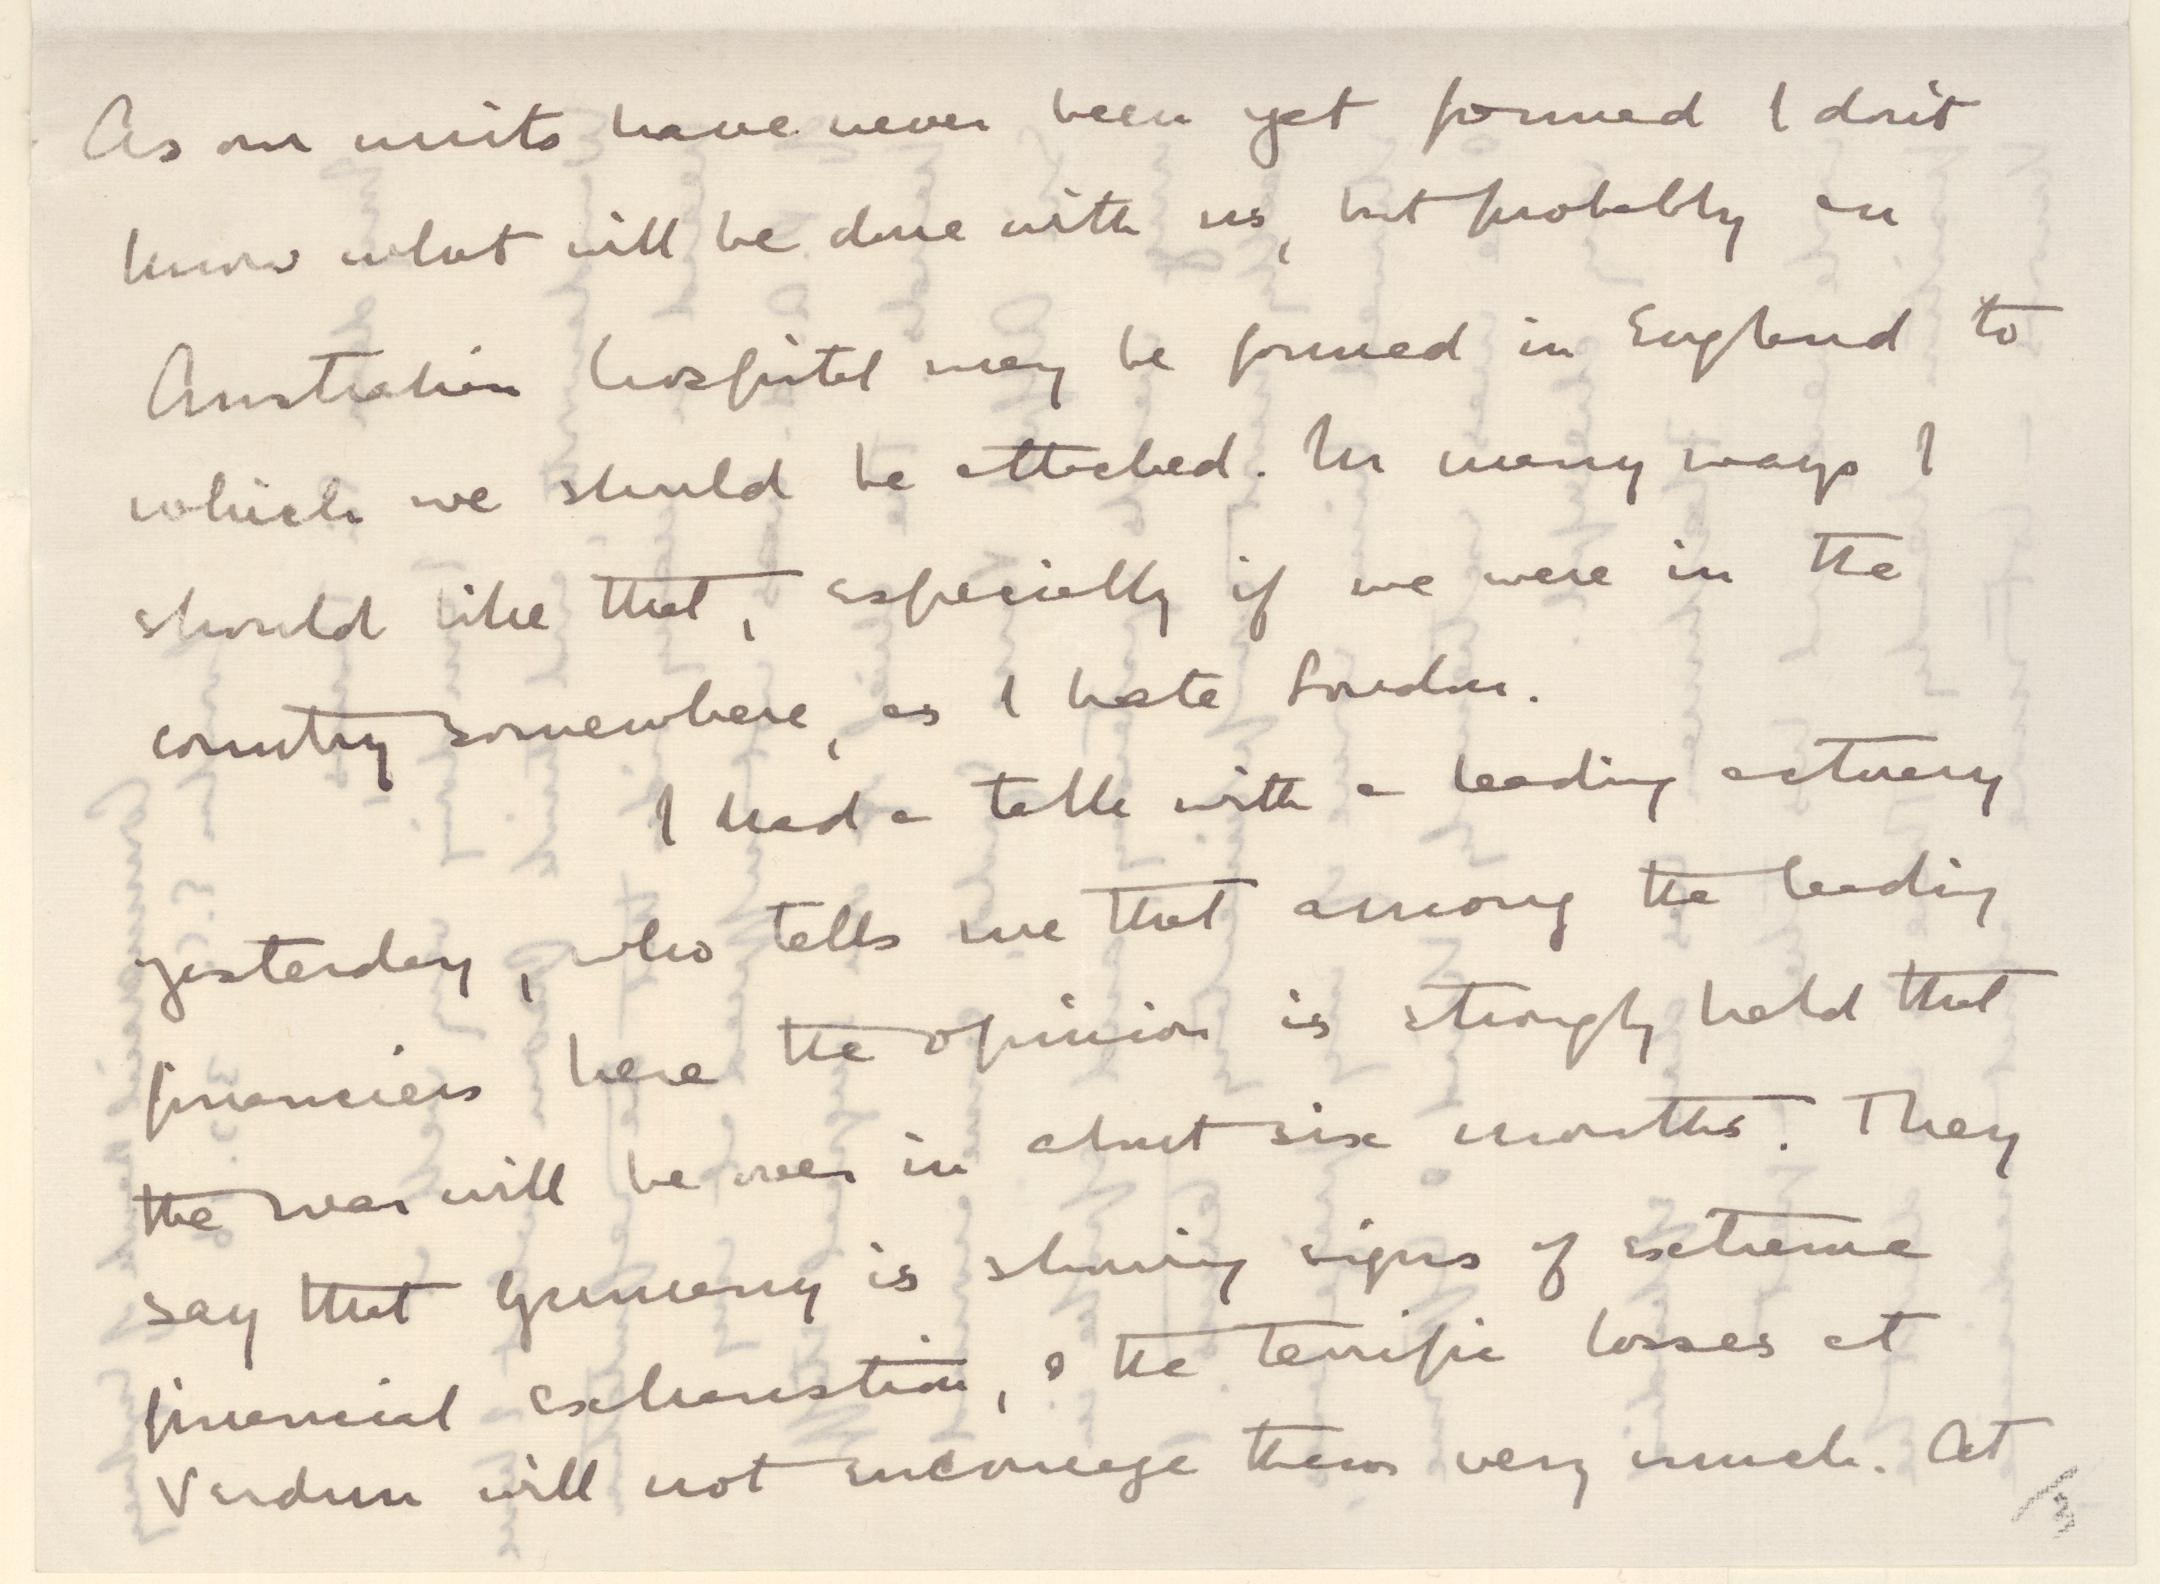 As our units have never been yet formed I don't
know what will be done with us, but probably an
Australian hospital may be formed in England to
which we should be attached. In many ways I
should like that, especially if we were in the
country somewhere, as I hate London.
I had a talk with a leading actuary
yesterday, who tells me that among the leading
financiers here the opinion is strongly held that
the war will be over in about six months. They
say that Germany is showing signs of extreme
financial exhaustion, & the terrific losses at
Verdun will not encourage them very much. At